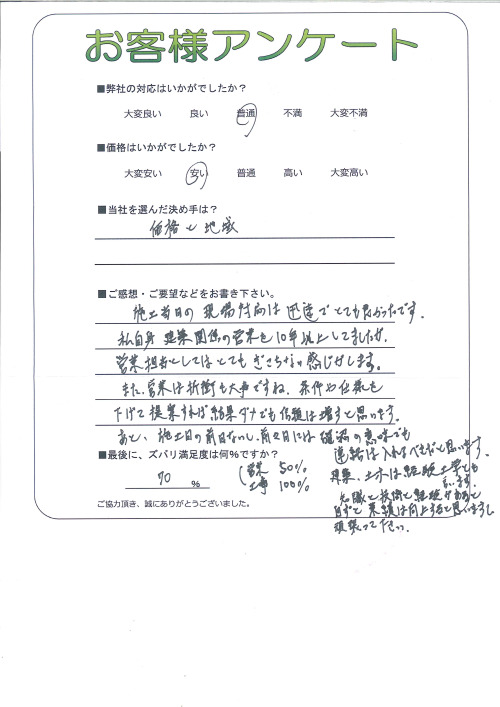 お客様アンケート
■弊社の対応はいかがでしたか？
大変良い 良い 普通 不満 大変不満
■価格はいかがでしたか？
大変安い 安い 普通 高い 大変高い
■当社を選んだ決め手は？
価格と地域
■ご感想・ご要望などをお書き下さい。
施工当日の現場対応は迅速でとても良かったです。
私自身建築関係の営業を10年以上してましたが、
営業担当としてはとてもぎこちない感じがします。
また、営業は折衝も大事ですね。条件や仕様も
下げて提案すれば結果ダメでも信頼は増すと思います。
あと、施工日の前日ないし、前々日には確認の意味でも
連絡は入れるべきだと思います。
■最後に、ズバリ満足度は何％ですか？
70 ％
(営業 50％
工事 100％
建築、土木は経験工学とも
言います。
知識と技術と経験があると
自ずと業績は向上すると思いますし
頑張って下さい。
ご協力頂き、誠にありがとうございました。